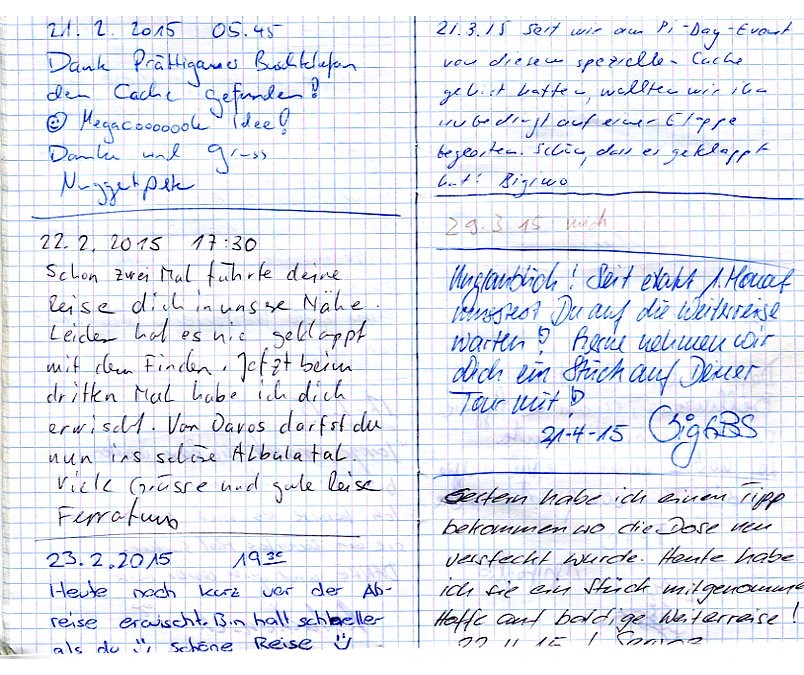 21. 2. 2015 05.45
Dank Prättigauer Buschtelefon
den Cache gefunden!
☺ Megacooooole Idee!
Danke und Gruss
Nuggetpete
22. 2. 2015 17:30
Schon zwei Mal führte deine
Reise dich in unsere Nähe.
Leider hat es nie geklappt
mit dem Finden. Jetzt beim
dritten Mal habe ich dich
erwischt. Von Davos darfst du
nun ins schöne Albulatal.
Viele Grüsse und gute Reise
23.2.2015 19 30
Heute noch kurz vor der Ab-
reise erwischt. Bin halt schneller
als du ☺ schöne Reise ☺
21.3.15 Seit wir am Pi-Day-Event
von diesem speziellen Cache
gehört hatten, wollten wir ihn
unbedingt auf einer Etappe
begleiten. Schön, dass es geklappt
hat!
29.3.15 mich
Unglaublich! Seit exakt 1. Monat
musstest Du auf die Weiterreise
warten! Gerne nehmen wir
dich ein Stück auf Deiner
Tour mit!
21-4-15
Gestern habe ich einen Tipp
bekommen wo die Dose neu
versteckt wurde. Heute habe
ich sie ein Stück mitgenomme
Hoffe auf baldige Weiterreise!